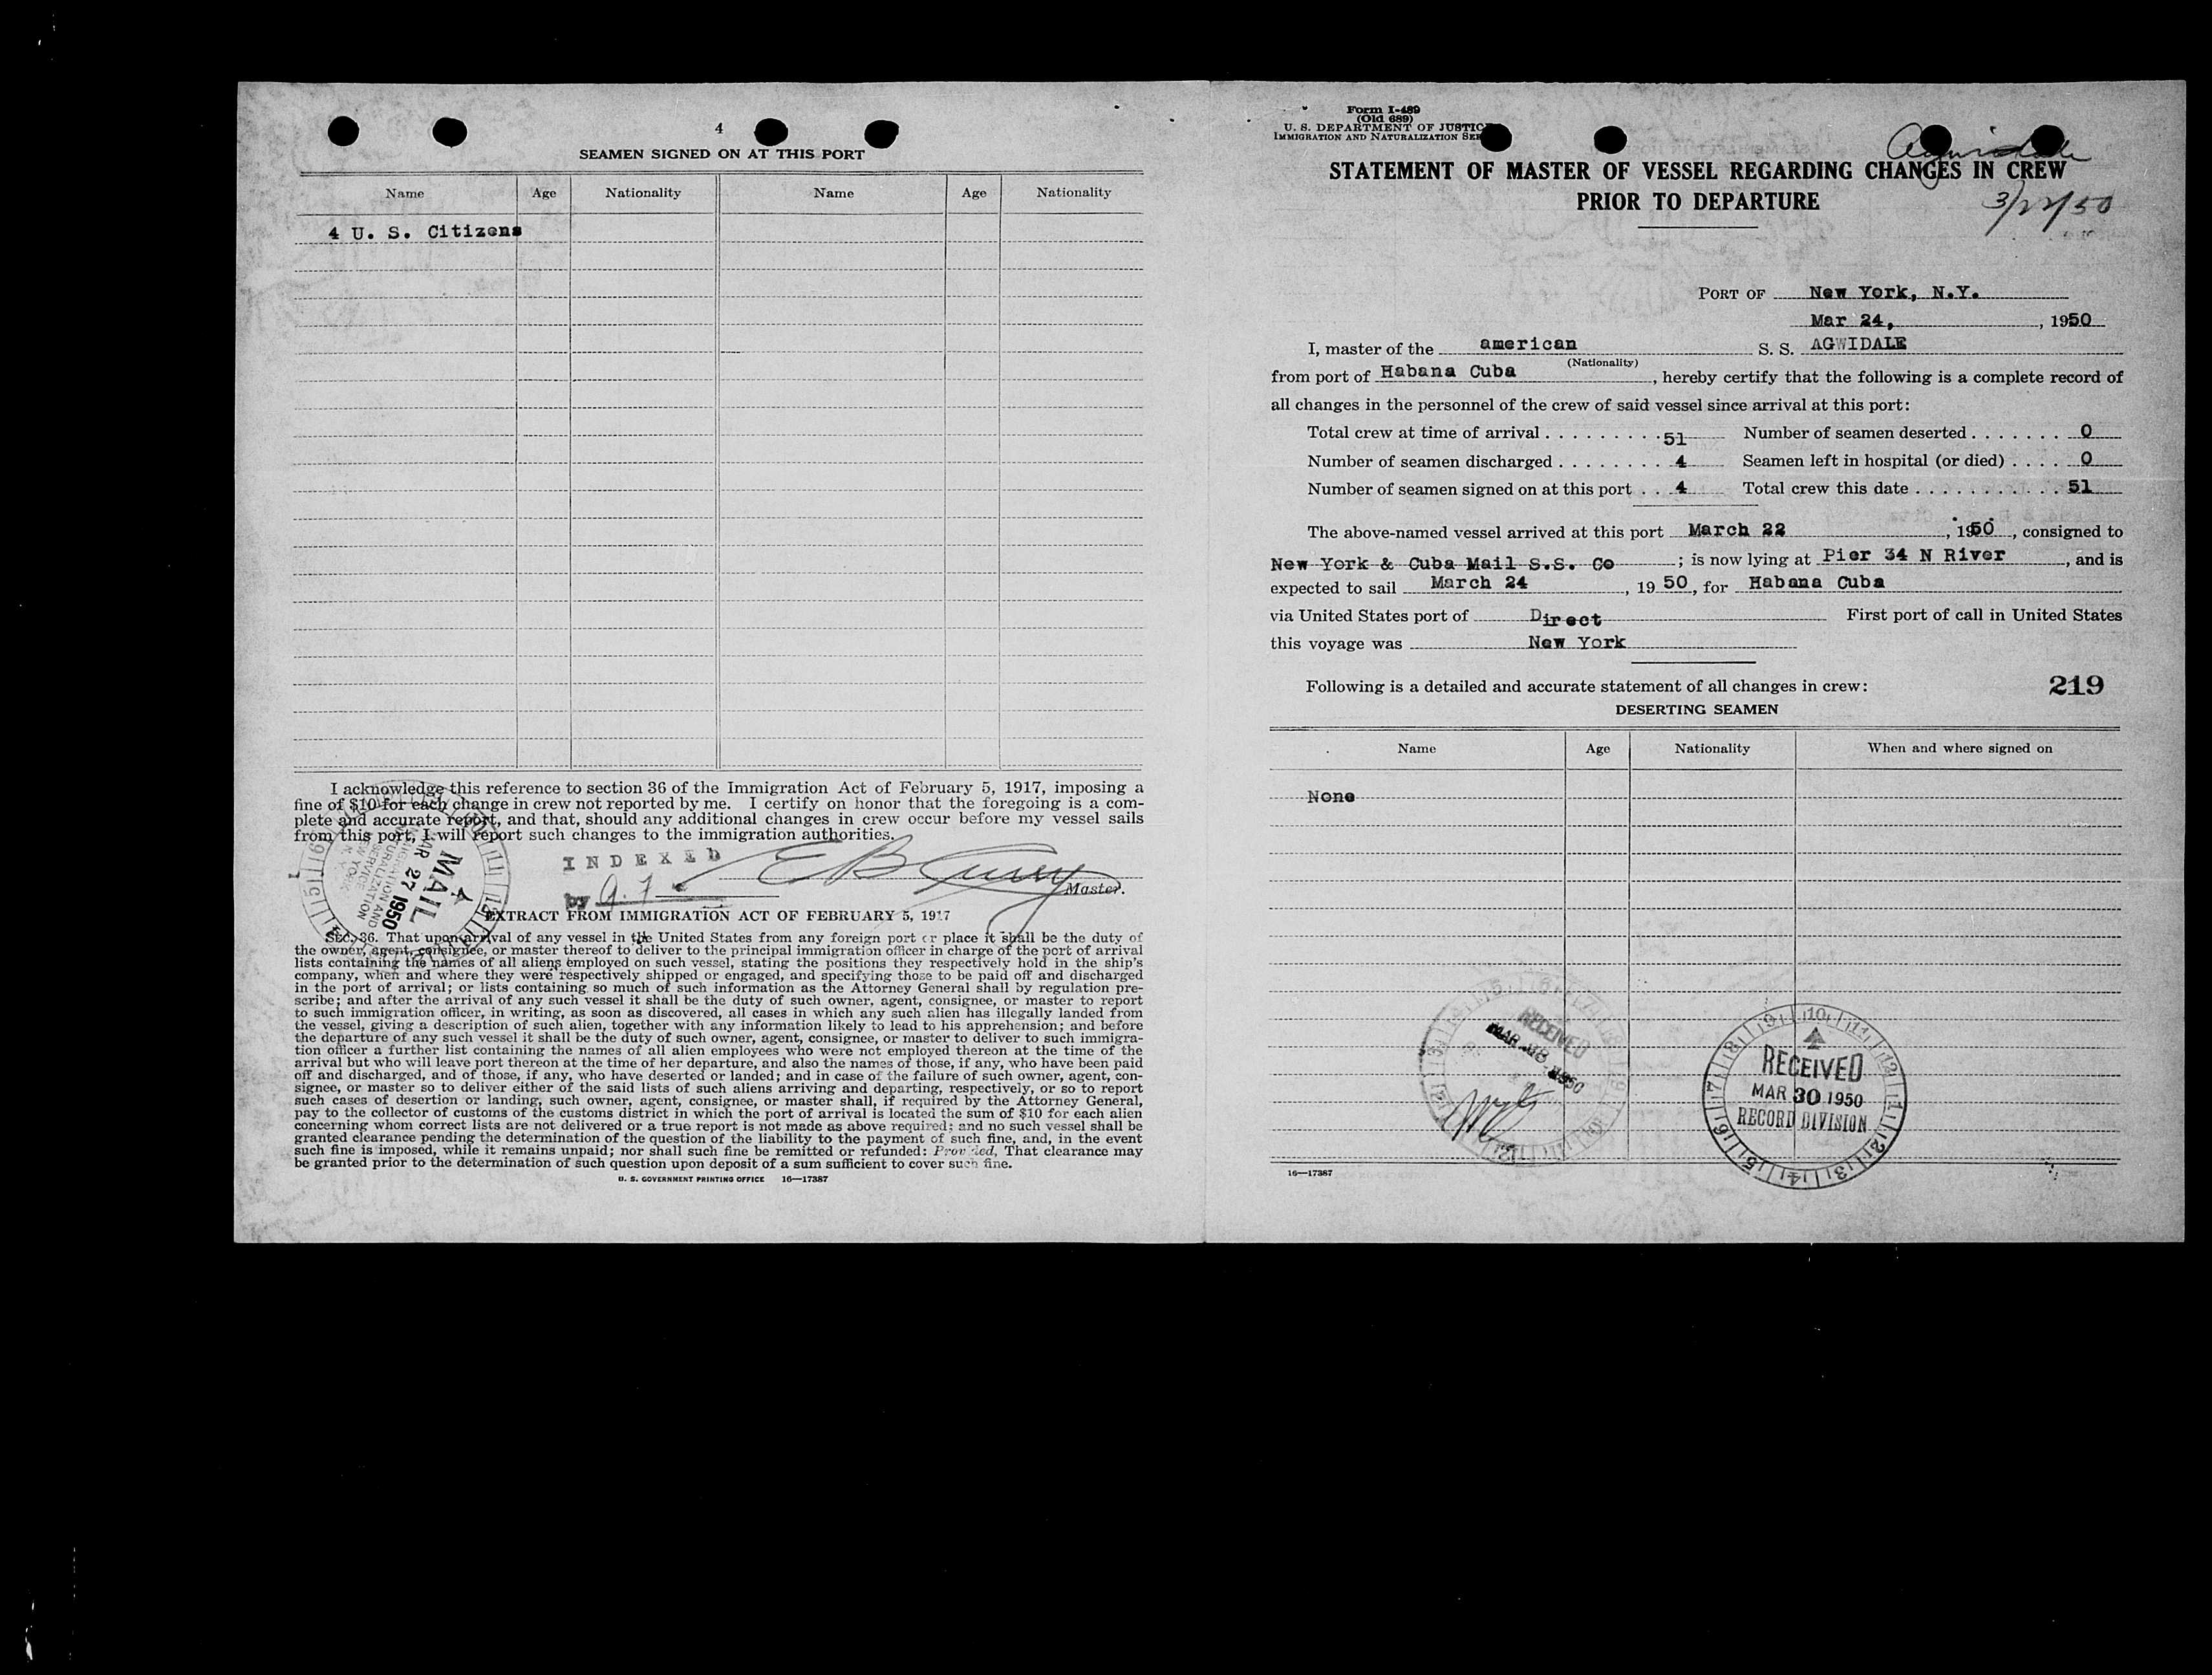 4
SEAMEN SIGNED ON AT THIS PORT
Name Age Nationality Name Age Nationality
4 U. S. Citizens
I acknowledge this reference to section 36 of the Immigration Act of February 5, 1917, imposing a
fine of $10 for each change in crew not reported by me. I certify on honor that the foregoing is a com-
plete and accurate report, and that, should any additional changes in crew occur before my vessel sails
from this port, I will report such changes to the immigration authorities.
INDEXED
by
Master.
MAIL
MAR 27 1950
IMMIGRATION AND
NATURALIZATION
SERVICE
NEW YORK
N. Y.
EXTRACT FROM IMMIGRATION ACT OF FEBRUARY 5, 1917
SEC. 36. That upon arrival of any vessel in the United States from any foreign port or place it shall be the duty of
the owner, agent, consignee, or master thereof to deliver to the principal immigration officer in charge of the port of arrival
lists containing the names of all aliens employed on such vessel, stating the positions they respectively hold in the ship's
company, when and where they were respectively shipped or engaged, and specifying those to be paid off and discharged
in the port of arrival; or lists containing so much of such information as the Attorney General shall by regulation pre-
scribe; and after the arrival of any such vessel it shall be the duty of such owner, agent, consignee, or master to report
to such immigration officer, in writing, as soon as discovered, all cases in which any such alien has illegally landed from
the vessel, giving a description of such alien, together with any information likely to lead to his apprehension; and before
the departure of any such vessel it shall be the duty of such owner, agent, consignee, or master to deliver to such immigra-
tion officer a further list containing the names of all alien employees who were not employed thereon at the time of the
arrival but who will leave port thereon at the time of her departure, and also the names of those, if any, who have been paid
off and discharged, and of those, if any, who have deserted or landed; and in case of the failure of such owner, agent, con-
signee, or master so to deliver either of the said lists of such aliens arriving and departing, respectively, or so to report
such cases of desertion or landing, such owner, agent, consignee, or master shall, if required by the Attorney General,
pay to the collector of customs of the customs district in which the port of arrival is located the sum of $10 for each alien
concerning whom correct lists are not delivered or a true report is not made as above required; and no such vessel shall be
granted clearance pending the determination of the question of the liability to the payment of such fine, and, in the event
such fine is imposed, while it remains unpaid; nor shall such fine be remitted or refunded: Provided, That clearance may
be granted prior to the determination of such question upon deposit of a sum sufficient to cover such fine.
U. S. GOVERNMENT PRINTING OFFICE 16—17387
Form I-489
(Old 689)
U. S. DEPARTMENT OF JUSTIC
IMMIGRATION AND NATURALIZATION SER
Agwidale
STATEMENT OF MASTER OF VESSEL REGARDING CHANGES IN CREW
PRIOR TO DEPARTURE
3/22/50
PORT OF New York, N.Y.
Mar 24, , 1950
I, master of the american S. S. AGWIDALE
(Nationality)
from port of Habana Cuba , hereby certify that the following is a complete record of
all changes in the personnel of the crew of said vessel since arrival at this port:
Total crew at time of arrival . . . . . . . . . 51 Number of seamen deserted . . . . . . . 0
Number of seamen discharged . . . . . . . . 4 Seamen left in hospital (or died) . . . . 0
Number of seamen signed on at this port . . 4 Total crew this date . . . . . . . . . . . 51
The above-named vessel arrived at this port March 22 , 1950 , consigned to
New York & Cuba Mail S.S. Co ; is now lying at Pier 34 N River , and is
expected to sail March 24 , 19 50 , for Habana Cuba
via United States port of Direct First port of call in United States
this voyage was New York
Following is a detailed and accurate statement of all changes in crew: 219
DESERTING SEAMEN
Name Age Nationality When and where signed on
None
RECEIVED
MAR 28 1950
RECEIVED
MAR 30 1950
RECORD DIVISION
16—17387